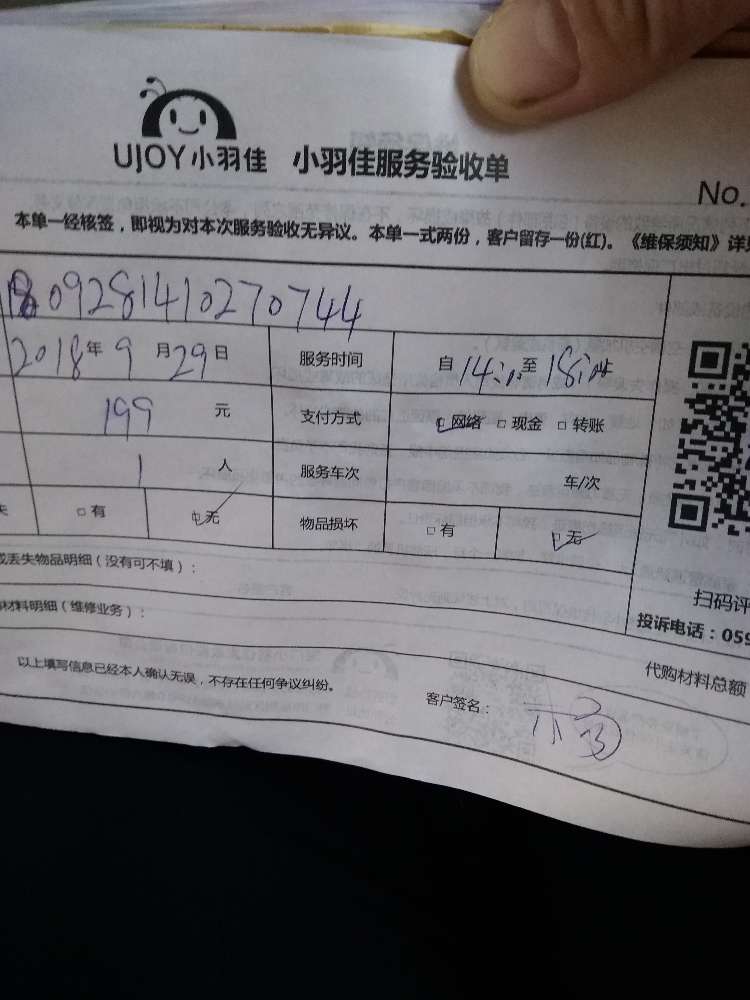 UJOY小羽佳 小羽佳服务验收单
No.
本单一经核签，即视为对本次服务验收无异议。本单一式两份，客户留存一份(红)。《维保须知》详见
18092814102707​44
2018年9月29日 服务时间 自14:00至18:00
199元 支付方式 ☑网络 □现金 □转账
1人 服务车次 车/次
□有 ☑无 物品损坏 □有 ☑无
丢失物品明细（没有可不填）：
材料明细（维修业务）：
扫码评
投诉电话：059
代购材料总额
以上填写信息已经本人确认无误，不存在任何争议纠纷。
客户签名：